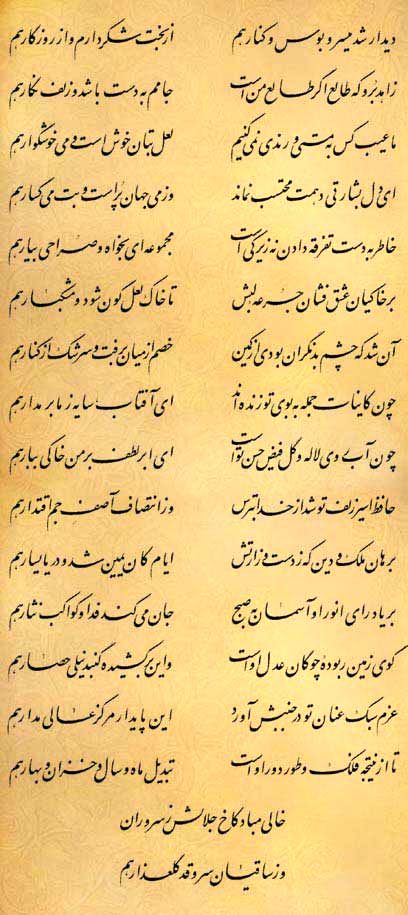 دیدار شد میسر و بوس و کنار هم از بخت شکر دارم و از روزگار هم
زاهد برو که طالع اگر طالع من است جامم به دست باشد و زلف نگار هم
ما عیب کس به مستی و رندی نمی‌کنیم لعل بتان خوش است و می خوشگوار هم
ای دل بشارتی دهمت محتسب نماند وز می جهان پر است و بت می گسار هم
خاطر به دست تفرقه دادن نه زیرکی است مجموعه‌ای بخواه و صراحی بیار هم
بر خاکیان عشق فشان جرعه لبش تا خاک لعل گون شود و مشکبار هم
آن شد که چشم بد نگران بودی از کمین خصم از میان برفت و سرشک از کنار هم
چون کاینات جمله به بوی تو زنده‌اند ای آفتاب سایه ز ما بر مدار هم
چون آب روی لاله و گل فیض حسن تو است ای ابر لطف بر من خاکی ببار هم
حافظ اسیر زلف تو شد از خدا بترس وز انتصاف آصف جم اقتدار هم
برهان ملک و دین که ز دست وزارتش ایام کان یمین شد و دریا یسار هم
بر یاد رای انور او آسمان به صبح جان می‌کند فدا و کواکب نثار هم
گوی زمین ربوده چوگان عدل او است وین برکشیده گنبد نیلی حصار هم
عزم سبک عنان تو در جنبش آورد این پایدار مرکز عالی مدار هم
تا از نتیجه فلک و طور دور او است تبدیل ماه و سال و خزان و بهار هم
خالی مباد کاخ جلالش ز سروران
وز ساقیان سرو قد گلعذار هم